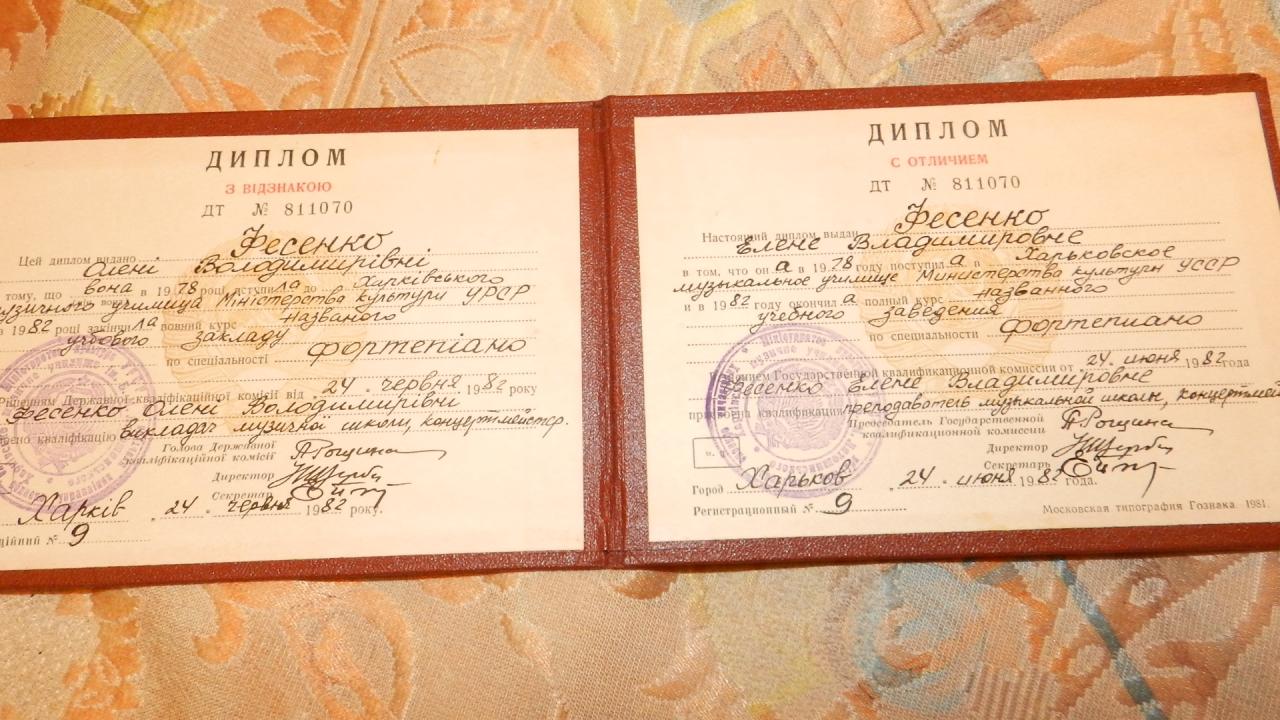 ДИПЛОМ
З ВІДЗНАКОЮ
ДТ № 811070
Фесенко
Цей диплом видано
Олені Володимирівні
тому, що вона в 1978 році вступила до Харківського
музичного училища Міністерства культури УРСР
в 1982 році закінчила повний курс названого
учбового закладу
по спеціальності фортепіано
Рішенням Державної кваліфікаційної комісії від 24 червня 1982 року
Фесенко Олені Володимирівні
кваліфікацію викладач музичної школи, концертмейстер.
Голова Державної
кваліфікаційної комісії
Директор
Секретар
Харків „ 24 „ червня 1982 року.
№ 9
ДИПЛОМ
С ОТЛИЧИЕМ
ДТ № 811070
Фесенко
Настоящий диплом выдан
Елене Владимировне
в том, что она в 1978 году поступила в Харьковское
музыкальное училище Министерства культуры УССР
и в 1982 году окончила полный курс названного
учебного заведения
по специальности фортепиано
Решением Государственной квалификационной комиссии от 24 июня 1982 года
Фесенко Елене Владимировне
присвоена квалификация преподаватель музыкальной школы, концертмей
Председатель Государственной
квалификационной комиссии
Директор
Секретарь
Город Харьков „ 24 „ июня 1982 года.
Регистрационный № 9
Московская типография Гознака. 1981.